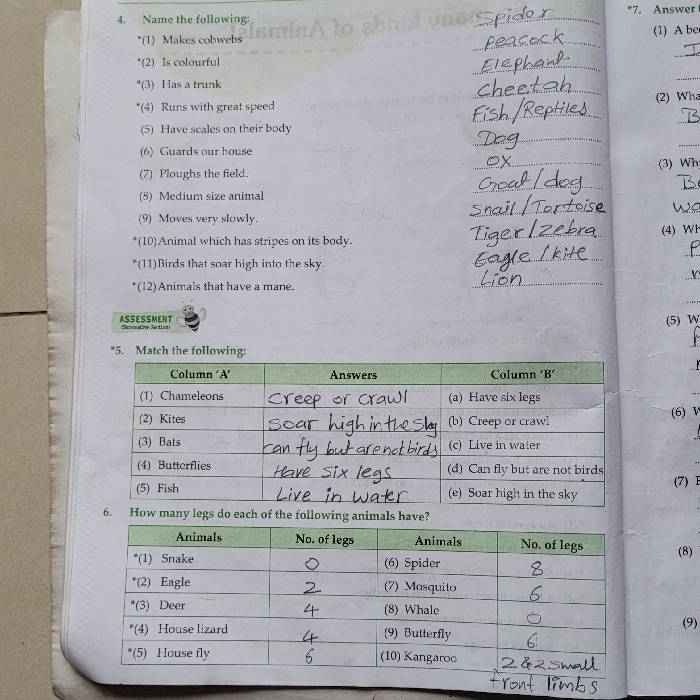 4. Name the following: Spidor
*(1) Makes cobwebs peacock
*(2) Is colourful Elephant
*(3) Has a trunk cheetah
*(4) Runs with great speed Fish/Reptiles
(5) Have scales on their body Dog
(6) Guards our house OX
(7) Ploughs the field. Goat/dog
(8) Medium size animal Snail/Tortoise
(9) Moves very slowly. Tiger/zebra
*(10) Animal which has stripes on its body. Eagle/kite
*(11) Birds that soar high into the sky. Lion
*(12) Animals that have a mane.
ASSESSMENT
*5. Match the following:
Column 'A' Answers Column 'B'
(1) Chameleons creep or crawl (a) Have six legs
(2) Kites soar high in the sky (b) Creep or crawl
(3) Bats can fly but are not birds (c) Live in water
(4) Butterflies Have six legs (d) Can fly but are not birds
(5) Fish Live in water (e) Soar high in the sky
6. How many legs do each of the following animals have?
Animals No. of legs Animals No. of legs
*(1) Snake 0 (6) Spider 8
*(2) Eagle 2 (7) Mosquito 6
*(3) Deer 4 (8) Whale 0
*(4) House lizard 4 (9) Butterfly 6
*(5) House fly 6 (10) Kangaroo 2 & 2 small
front limbs
*7. Answer
(1) A
(2)
(3)
(4)
(5)
(6)
(7)
(8)
(9)